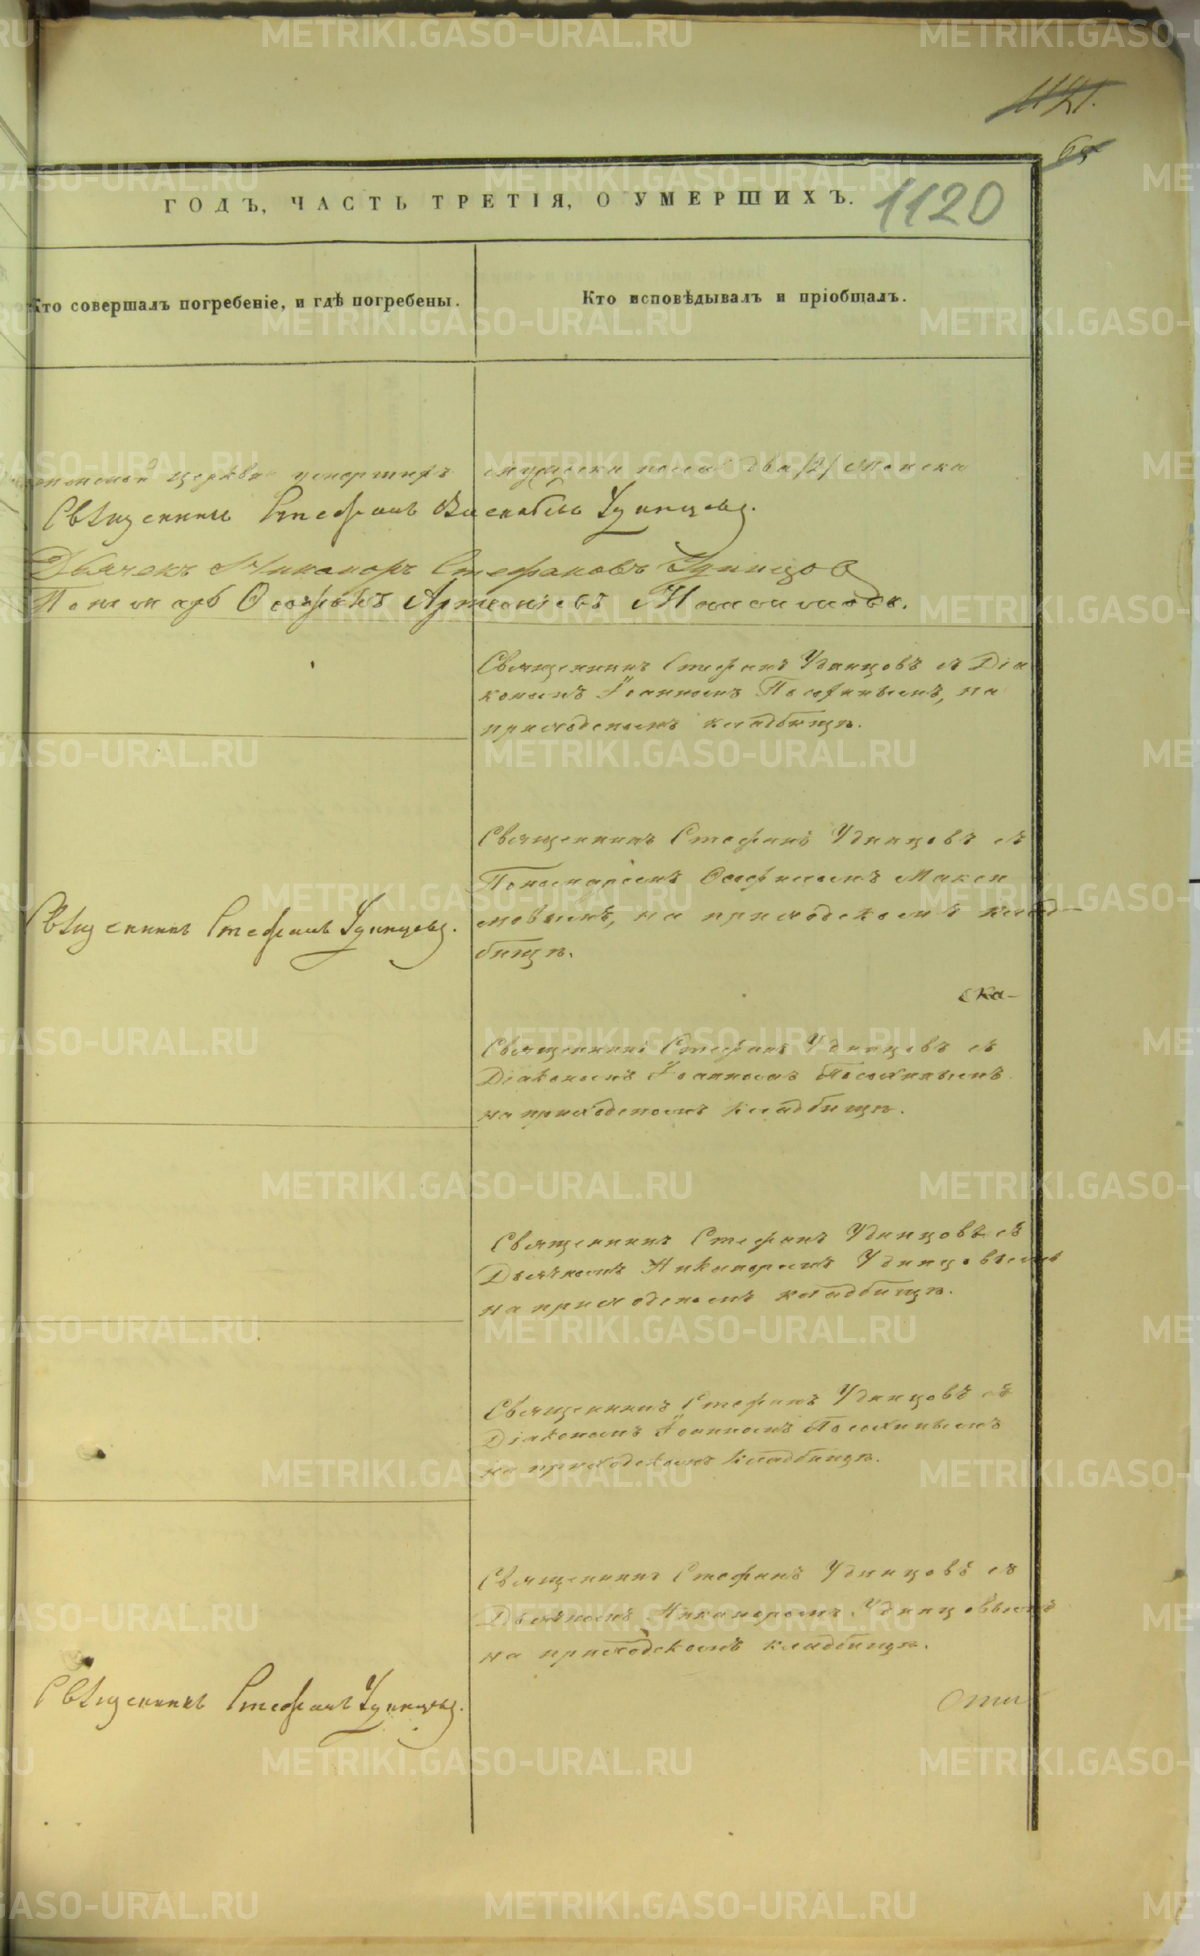 1121.
65
ГОДЪ, ЧАСТЬ ТРЕТІЯ, О УМЕРШИХЪ.
1120
Кто совершалъ погребеніе, и гдѣ погребены.
Кто исповѣдывалъ и пріобщалъ.
церкви умершихъ мужеска пола два /2/ женска
Священникъ Стефанъ Удинцовъ.
Дьячекъ Никаноръ Стефановъ Удинцов
Пономарь Осафъ Максимовъ.
Священникъ Стефанъ Удинцовъ съ Діа
кономъ Іоанномъ на
приходскомъ кладбищѣ.
Священникъ Стефанъ Удинцовъ съ
Пономаремъ Макси
мовымъ, на приходскомъ клад-
бищѣ.
Священникъ Стефанъ Удинцовъ.
ска-
Священникъ Стефанъ Удинцовъ съ
Діакономъ Іоанномъ
на приходскомъ кладбищѣ.
Священникъ Стефанъ Удинцовъ съ
Дьячкомъ Никаноромъ Удинцовымъ
на приходскомъ кладбищѣ.
Священникъ Стефанъ Удинцовъ съ
Діакономъ Іоанномъ
на приходскомъ кладбищѣ.
Священникъ Стефанъ Удинцовъ съ
Дьячкомъ Никаноромъ Удинцовымъ
на приходскомъ кладбищѣ.
Священникъ Стефанъ Удинцовъ.
METRIKI.GASO-URAL.RU